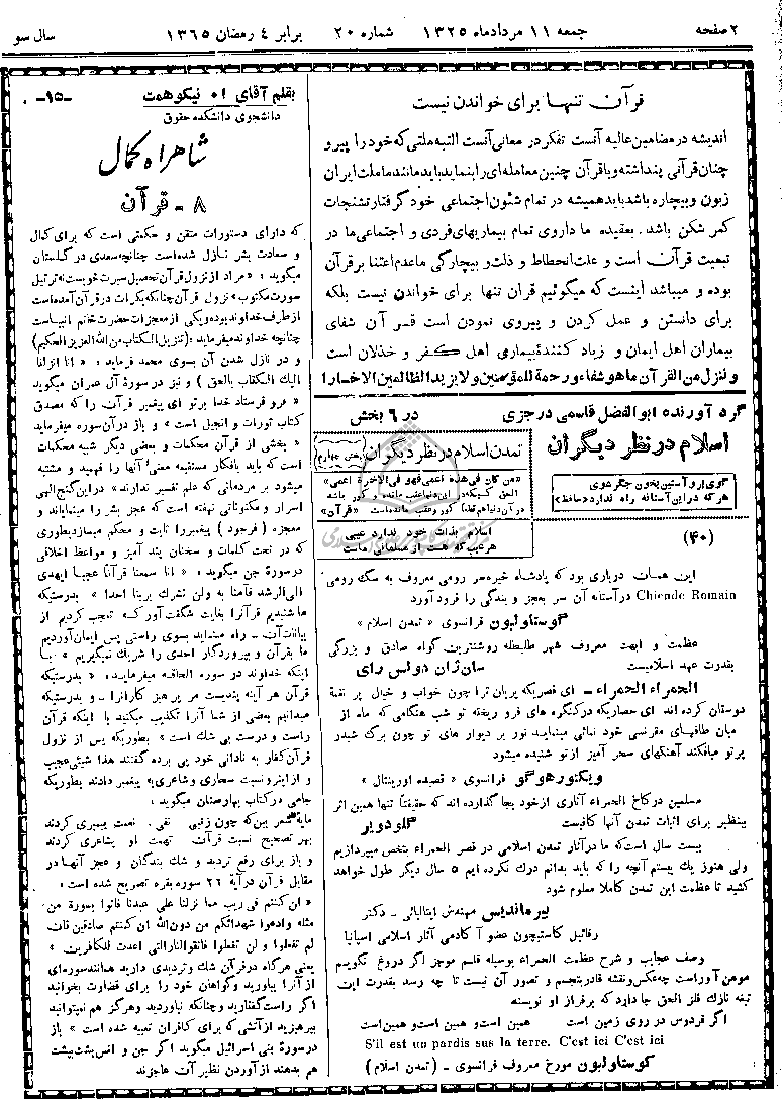 ۲ صفحه جمعه ۱۱ مردادماه ۱۳۲۵ شماره ۲۰ برابر ٤ رمضان ۱۳٦۵ سال سو
قرآن تنها برای خواندن نیست
اندیشه در مضامین عالیه آنست تفکر در معانی آنست البته ملتی که خود را پیرو
چنان قرآنی پنداشته و با قرآن چنین معامله‌ای را بنماید باید مانند ما ملت ایران
زبون و بیچاره باشد باید همیشه در تمام شئون اجتماعی خود گرفتار تشنجات
کمر شکن باشد. بعقیده ما داروی تمام بیماریهای فردی و اجتماعی ما در
تبعیت قرآن است و علت انحطاط و ذلت و بیچارگی ما عدم اعتنا بر قرآن
بوده و میباشد اینست که میگوئیم قران تنها برای خواندن نیست بلکه
برای دانستن و عمل کردن و پیروی نمودن است قسر آن شفای
بیماران اهل ایمان و زیاد کنندهٔ بیماری اهل کفر و خذلان است
و ننزل من القرآن ما هو شفاء و رحمة للمؤمنین و لا یزید الظالمین الا خسارا
گرد آورنده ابوالفضل قاسمی درجزی
در ٦ بخش
اسلام در نظر دیگران
گو برو آستین بخون جگر شوی
هر که در این آستانه راه ندارد «حافظ»
تمدن اسلام در نظر دیگران
(بخش چهارم)
«من کان فی هذه اعمی فهو فی الاخرة اعمی»
الحق کسیکه در این دنیا عقب مانده و کور باشد
در آن دنیا هم کور وعقب مانده است «قرآن»
اسلام بذات خود ندارد عیبی
هر عیب که هست از مسلمانی ماست
(٤۰)
این همان درباری بود که پادشاه خیره سر رومی معروف به سگ رومی
Chiende Romain در آستانه آن سر بعجز و بندگی را فرود آورد
گوستاولبون فرانسوی «تمدن اسلام»
عظمت و ابهت معروف شهر طلیطله روشنترین گواه صادق و بزرگی
بقدرت عهد اسلامیست سان ژان دولس رای
الحمراء الحمراء - ای قصریکه پریان ترا چون خواب و خیال پر نقمهٔ
دوستان کرده اند ای حصاریکه در کنگره های فرو ریخته تو شب هنگامی که ماه از
میان طاقهای مقرنسی خود نمائی مینماید نور بر دیوار های تو چون برگ شبدر
پرتو میافکند آهنگهای سحر آمیز از تو شنیده میشود
ویکتورهوگو فرانسوی «قصیده اوریتال»
مسلمین در کاخ الحمراء آثاری از خود بجا گذارده اند که حقیقتاً تنها همین اثر
بینظیر برای اثبات تمدن آنها کافیست گلودویر
بیست سال است که ما در آثار تمدن اسلامی در قصر الحمراء بتخص میپردازیم
ولی هنوز یک بیستم آنچه را که باید بدانم درک نکرده ایم ۵ سال دیگر طول خواهد
کشید تا عظمت این تمدن کاملا معلوم شود
بیرماندیس مهندس ایتالیائی - دکتر
رفائیل کاستیچون عضو آکادمی آثار اسلامی اسپانیا
وصف عجایب و شرح عظمت الحمراء بوسیله قلم موجز اگر دروغ نگویم
موهن آوراست چه عکس و نقشه قادر بتجسم و تصور آن نیست تا چه رسد بقدرت این
تیفه نازک فلز الحق جا دارد که برفراز او نویسند
اگر فردوس در روی زمین است همین است و همین است و همین است
S'il est un pardis sus la terre. C'est ici C'est ici
گوستاولبون مورخ معروف فرانسوی (تمدن اسلام)
بقلم آقای ا. نیکو همت -۹۵-
دانشجوی دانشکده حقوق
شاهراه کمال
۸ - قرآن
که دارای دستورات متقن و حکمتی است که برای کمال
و سعادت بشر نازل شده است چنانچه سعدی در گلستان
میگوید: «مراد از نزول قرآن تحصیل سیرت خوبست نه ترتیل
سورت مکتوب» نزول قرآن چنانکه بکرات در قرآن آمده است
از طرف خداوند بوده و یکی از معجزات حضرت ختم انبیاست
چنانچه خداوند میفرماید: (تنزیل الکتاب من الله العزیز الحکیم)
و در نازل شدن آن بسوی محمد فرماید: «انا انزلنا
الیک الکتاب بالحق) و نیز در سورهٔ آل عمران میگوید
«فرو فرستاد خدا برتو ای پیغمبر قرآن را که مصدق
کتاب تورات و انجیل است» و باز در آن سوره میفرماید
«بخشی از قرآن محکمات و بعضی دیگر شبه محکمات
است که باید بافکار مستقیمه معنی آنها را فهمید و مشتبه
میشود بر مردمانی که علم تفسیر ندارند» در این گنج الهی
اسرار و مکنوناتی نهفته است که عجز بشر را مینمایاند و
معجزه (فرجود) پیغمبر را ثابت و محکم میسازد بطوری
که در تحت کلمات و سخنان پند آمیز و مواعظ اخلاقی
در سورهٔ جن میگوید: «انا سمعنا قرآنا عجبا یهدی
الی الرشد فآمنا به ولن نشرک بربنا احدا» بدرستیکه
ما شنیدیم قرآنرا بغایت شگفت آور که تعجب کردیم از
بیانات آن - راه مینماید بسوی راستی پس ایمان آوردیم
ما بقرآن و بپروردگار احدی را شریک نمیگیریم» نیا
اینکه خداوند در سوره الحاقه میفرماید: «بدرستیکه
قرآن هر آینه پندیست مر پرهیز کارانرا - و بدرستیکه
میدانیم بعضی از شما آنرا تکذیب میکنید با اینکه قرآن
راست و درست بی شک است» بطوریکه پس از نزول
قرآن کفار به نادانی خود پی برده گفتند هذا شیئی عجیب
و از اینرو نسبت سحاری و شاعری به پیغمبر دادند بطوریکه
جامی در کتاب بهارستان میگوید:
مایهٔ شعر بین که چون زنبی نفی. نعمت پیمبری کردند
بهر تصحیح نسبت قرآن تهمت او بشاعری کردند
و باز برای رفع تردید و شک بندگان و عجز آنها در
مقابل قرآن در آیهٔ ۲۲ سوره بقره تصریح شده است:
«ان کنتم فی ریب مما نزلنا علی عبدنا فاتوا بسورة من
مثله وادعوا شهدائکم من دون الله ان کنتم صادقین فان
لم تفعلوا و لن تفعلوا فاتقوا النار التی اعدت للکافرین»
یعنی هرگاه در قرآن شک و تردیدی دارید همانند سوره‌ای
از آنرا بیاورید و گواهان خود را برای قضاوت بخوانید
اگر راست گفتارید و چنانکه نیاوردید و هرگز هم نمیتوانید
بپرهیزید از آتشی که برای کافران تعبیه شده است» باز
در سورهٔ بنی اسرائیل میگوید اگر جن و انس پشت بپشت
هم بدهند از آوردن نظیر آن عاجزند